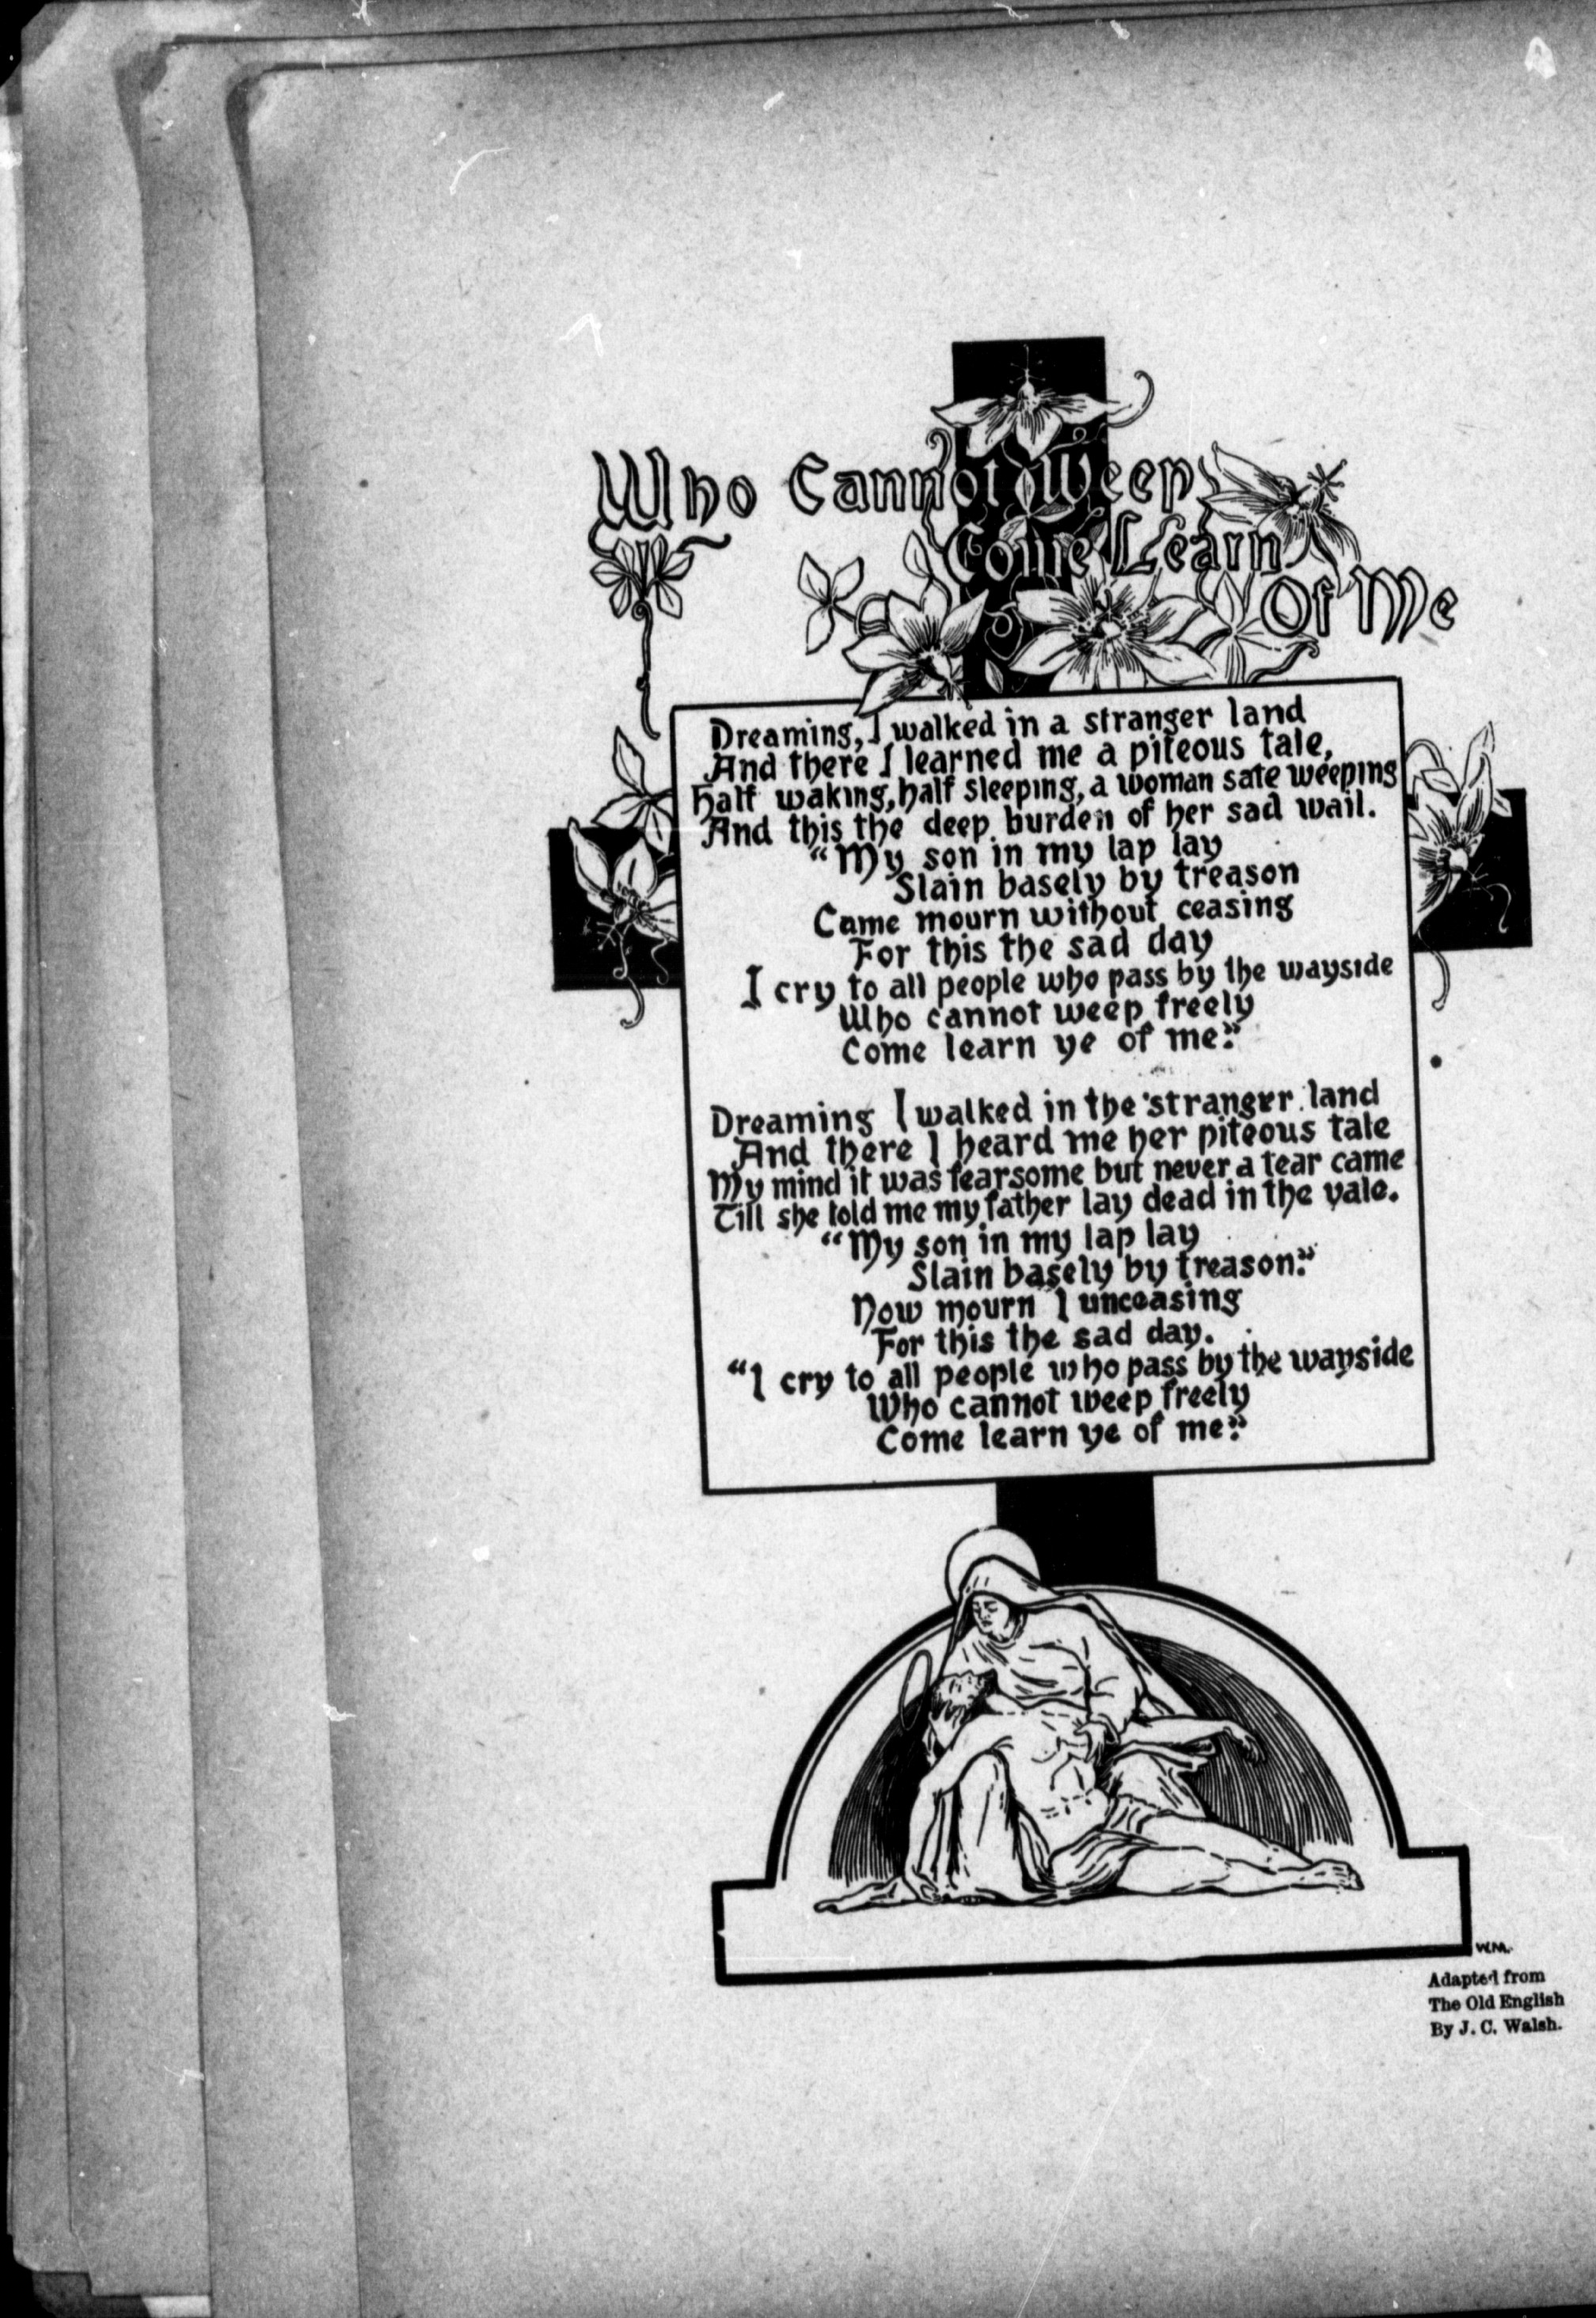 Who Cannot Weep
Come Learn
Of Me
Dreaming, I walked in a stranger land
And there I learned me a piteous tale,
Half waking, half sleeping, a woman sate weeping
And this the deep burden of her sad wail.
"My son in my lap lay
Slain basely by treason
Came mourn without ceasing
For this the sad day
I cry to all people who pass by the wayside
Who cannot weep freely
Come learn ye of me."
Dreaming I walked in the stranger land
And there I heard me her piteous tale
My mind it was fearsome but never a tear came
Till she told me my father lay dead in the vale.
"My son in my lap lay
Slain basely by treason."
Now mourn I unceasing
For this the sad day.
"I cry to all people who pass by the wayside
Who cannot weep freely
Come learn ye of me."
W.M.
Adapted from
The Old English
By J. C. Walsh.